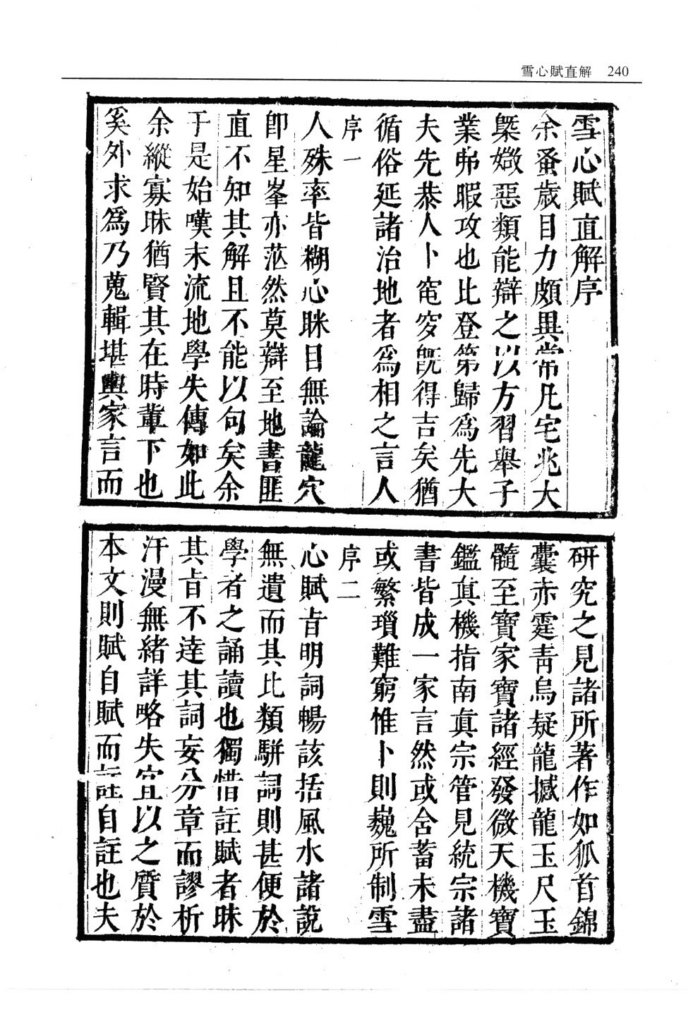 雪心賦直解 240
雪心賦直解序
余蚤歲目力頗異常凡宅兆大
槩媺惡類能辯之以方習舉子
業弗暇攻也比登第歸爲先大
夫先恭人卜窀穸旣得吉矣猶
循俗延諸治地者爲相之言人
序一
人殊率皆糊心眯目無論龍穴
卽星峯亦茫然莫辯至地書匪
直不知其解且不能以句矣余
于是始嘆末流地學失傳如此
余縱寡昧猶賢其在時輩下也
奚外求爲乃蒐輯堪輿家言而
研究之見諸所著作如狐首錦
囊赤霆靑烏疑龍撼龍玉尺玉
髓至寶家寶諸經發微天機寶
鑑眞機指南眞宗管見統宗諸
書皆成一家言然或含蓄未盡
或繁瑣難窮惟卜則巍所制雪
序二
心賦旨明詞暢該括風水諸說
無遺而其比類駢詞則甚便於
學者之誦讀也獨惜註賦者昧
其旨不達其詞妄分章而謬析
汗漫無緒詳略失宜以之質於
本文則賦自賦而註自註也夫